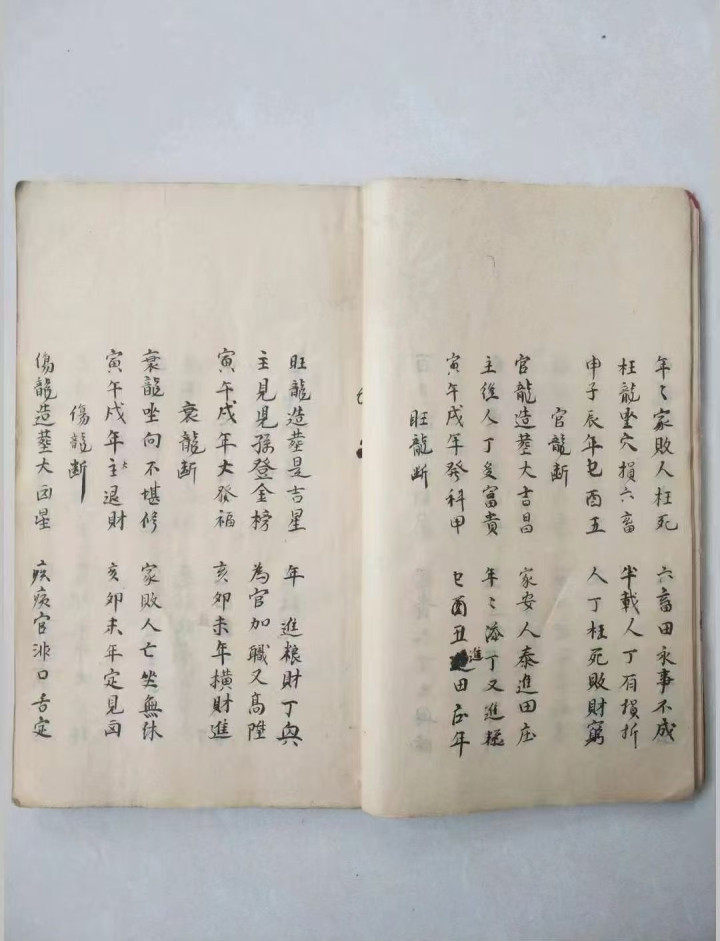 年〻家敗人枉死　六畜田永事不成
枉龍坐穴損六畜　半載人丁有損折
申子辰年乜酉五　人丁枉死敗財窮
官龍断
官龍造塟大吉昌　家安人泰進田庄
主後人丁多富貴　年〻添丁又進糧
寅午戌年發科甲　乜酉丑進田庄年
旺龍断
旺龍造塟是吉星　年進粮財丁興
主見児孫登金榜　為官加職又高陞
寅午戌年大發福　亥卯未年横財進
衰龍断
衰龍坐向不堪修　家敗人亡坐無休
寅午戌年主退財　亥卯未年定見凶
傷龍断
傷龍造塟大凶星　疾病官非口舌定